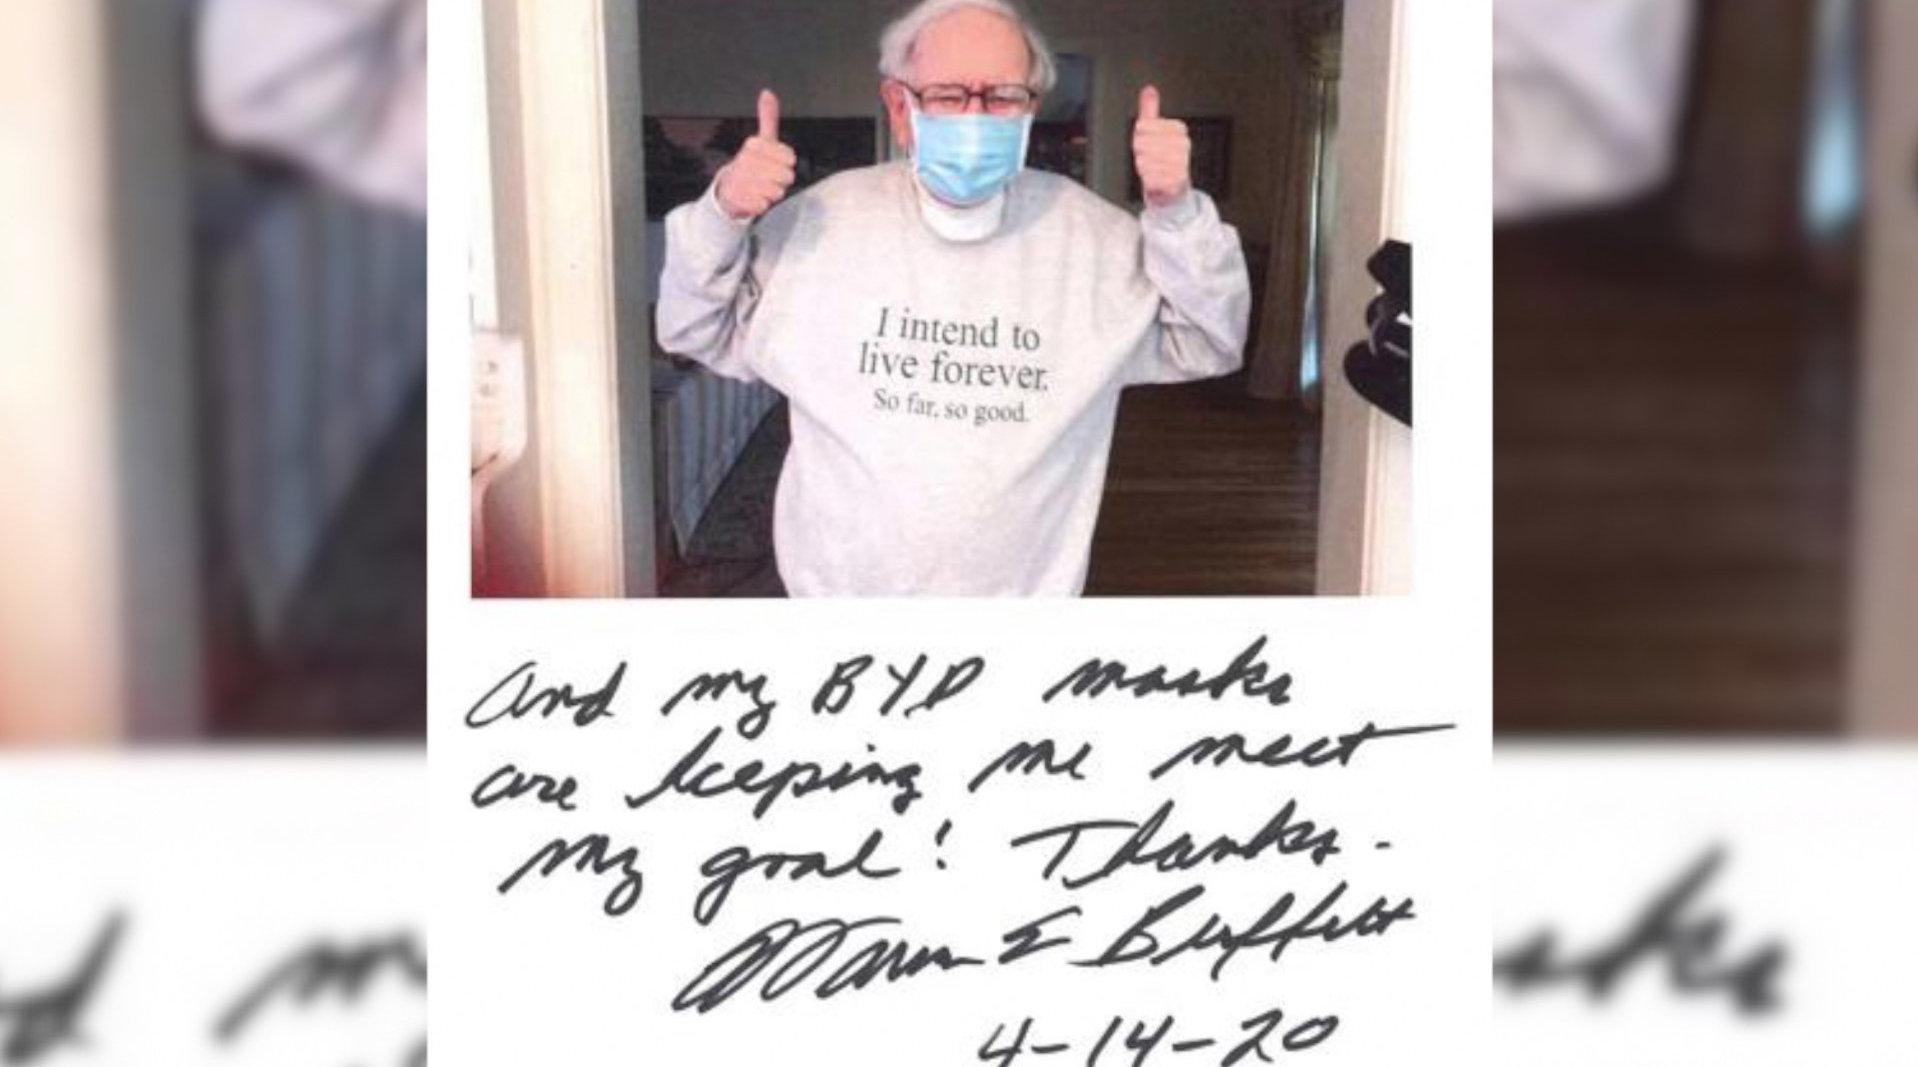 I intend to
live forever.
So far, so good.
And my BYD masks
are keeping me meet
my goal! Thanks.
Warren E Buffett
4-14-20